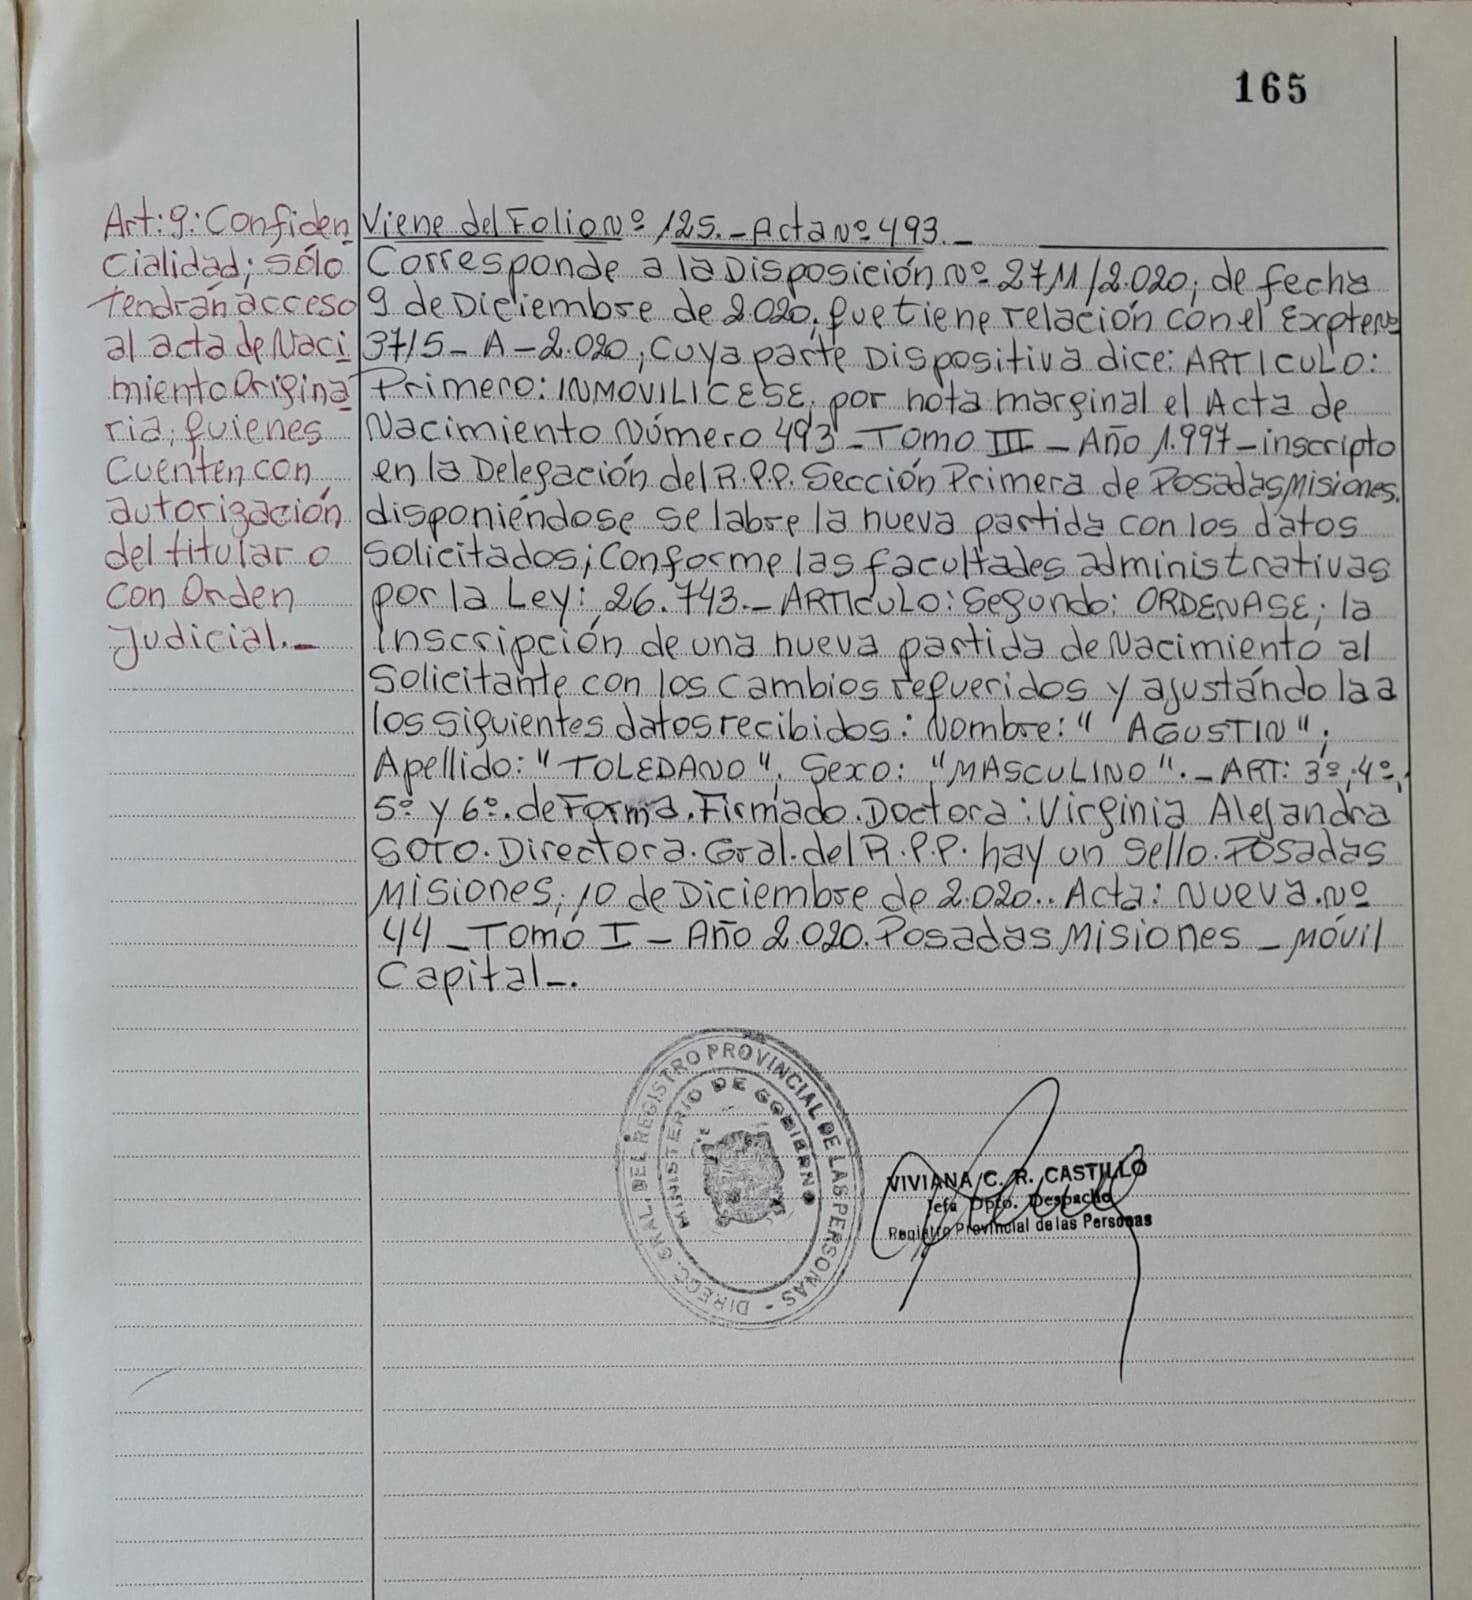 165
Art: 9: Confiden
cialidad; sólo
tendrán acceso
al acta de Naci
miento Origina
ria; quienes
cuenten con
autorización
del titular o
con Orden
Judicial.-
Viene del Folio Nº 125.- Acta Nº 493.-
Corresponde a la Disposición Nº 2711/2.020; de fecha
9 de Diciembre de 2020, que tiene relación con el Expte Nº
3715- A - 2.020, cuya parte Dispositiva dice: ARTICULO:
Primero: INMOVILICESE, por nota marginal el Acta de
Nacimiento Número 493 - Tomo III - Año 1.997 - inscripto
en la Delegación del R.P.P. Sección Primera de Posadas Misiones.
disponiéndose se labre la nueva partida con los datos
solicitados; conforme las facultades administrativas
por la Ley: 26.743.- ARTICULO: Segundo: ORDENASE; la
inscripción de una nueva partida de Nacimiento al
Solicitante con los cambios requeridos y ajustándola a
los siguientes datos recibidos: Nombre: " AGUSTIN";
Apellido: "TOLEDANO", Sexo: "MASCULINO".- ART: 3º, 4º,
5º y 6º. de Forma. Firmado. Doctora: Virginia Alejandra
SOTO. Directora. Gral. del R.P.P. hay un sello. Posadas
Misiones, 10 de Diciembre de 2.020.. Acta: Nueva. Nº
44 - Tomo I - Año 2.020. Posadas Misiones - Móvil
Capital-.
DIREC. GRAL. DEL REGISTRO PROVINCIAL DE LAS PERSONAS -
MINISTERIO DE GOBIERNO
VIVIANA C. R. CASTILLO
Jefa Dpto. Despacho
Registro Provincial de las Personas